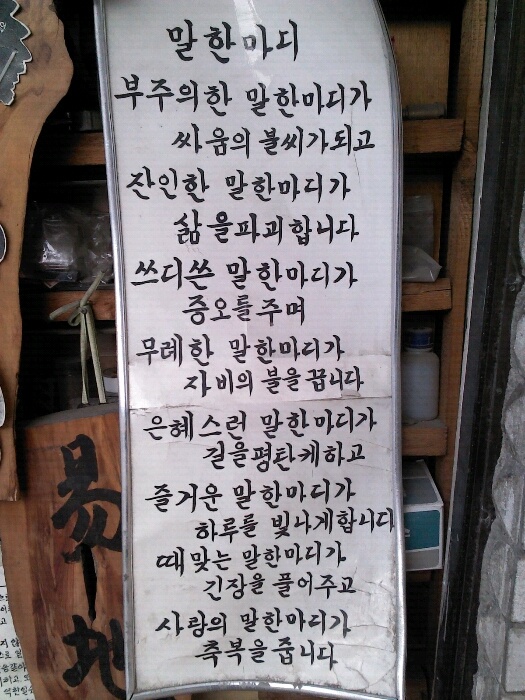 말한마디
부주의한 말한마디가
싸움의 불씨가되고
잔인한 말한마디가
삶을파괴합니다
쓰디쓴 말한마디가
증오를주며
무례한 말한마디가
자비의 불을 끕니다
은혜스런 말한마디가
길을평탄케하고
즐거운 말한마디가
하루를 빛나게합니다
때맞는 말한마디가
긴장을 풀어주고
사랑의 말한마디가
축복을줍니다